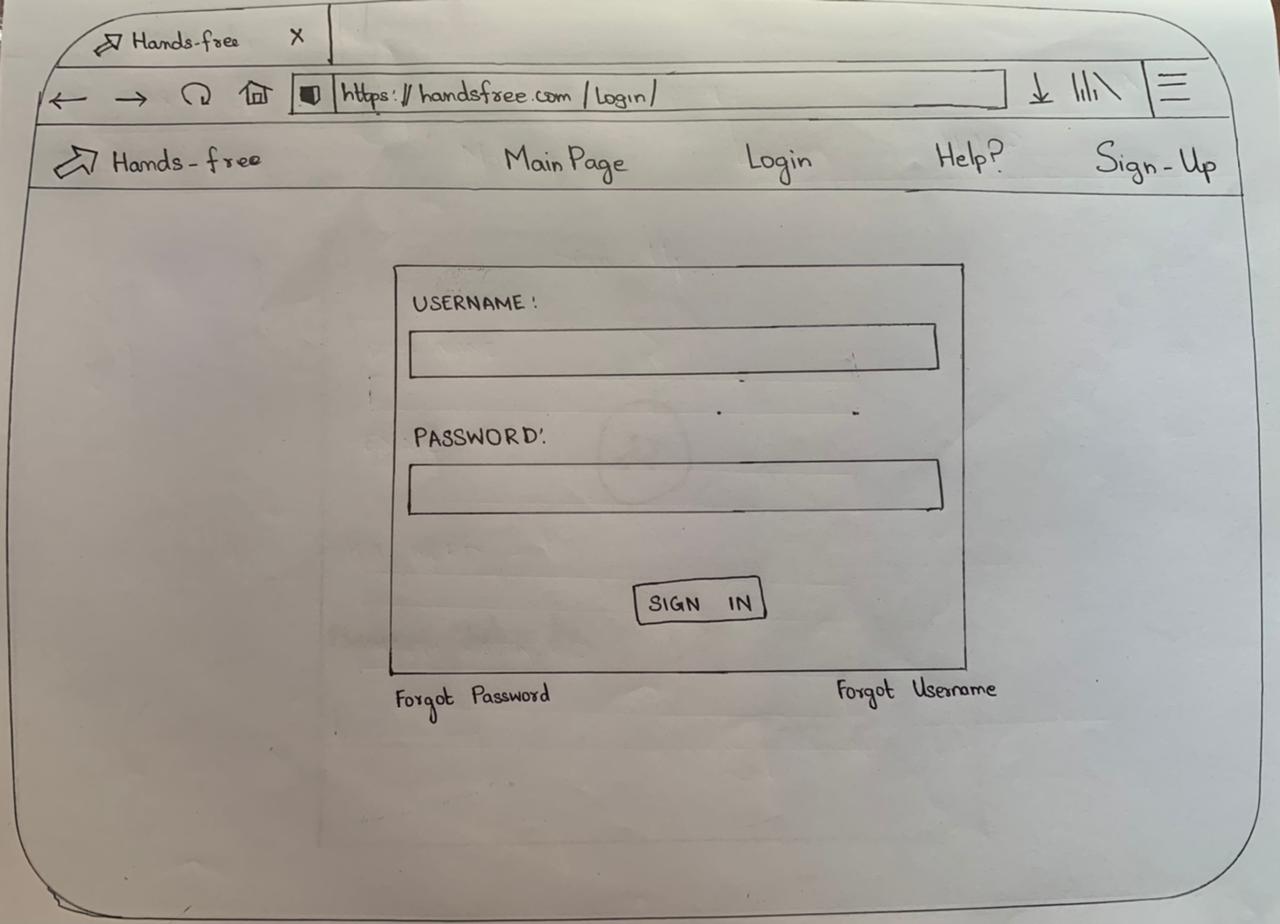 Hands-free X
https://handsfree.com/Login/
Hands-free Main Page Login Help? Sign-Up
USERNAME:
PASSWORD:
SIGN IN
Forgot Password Forgot Username